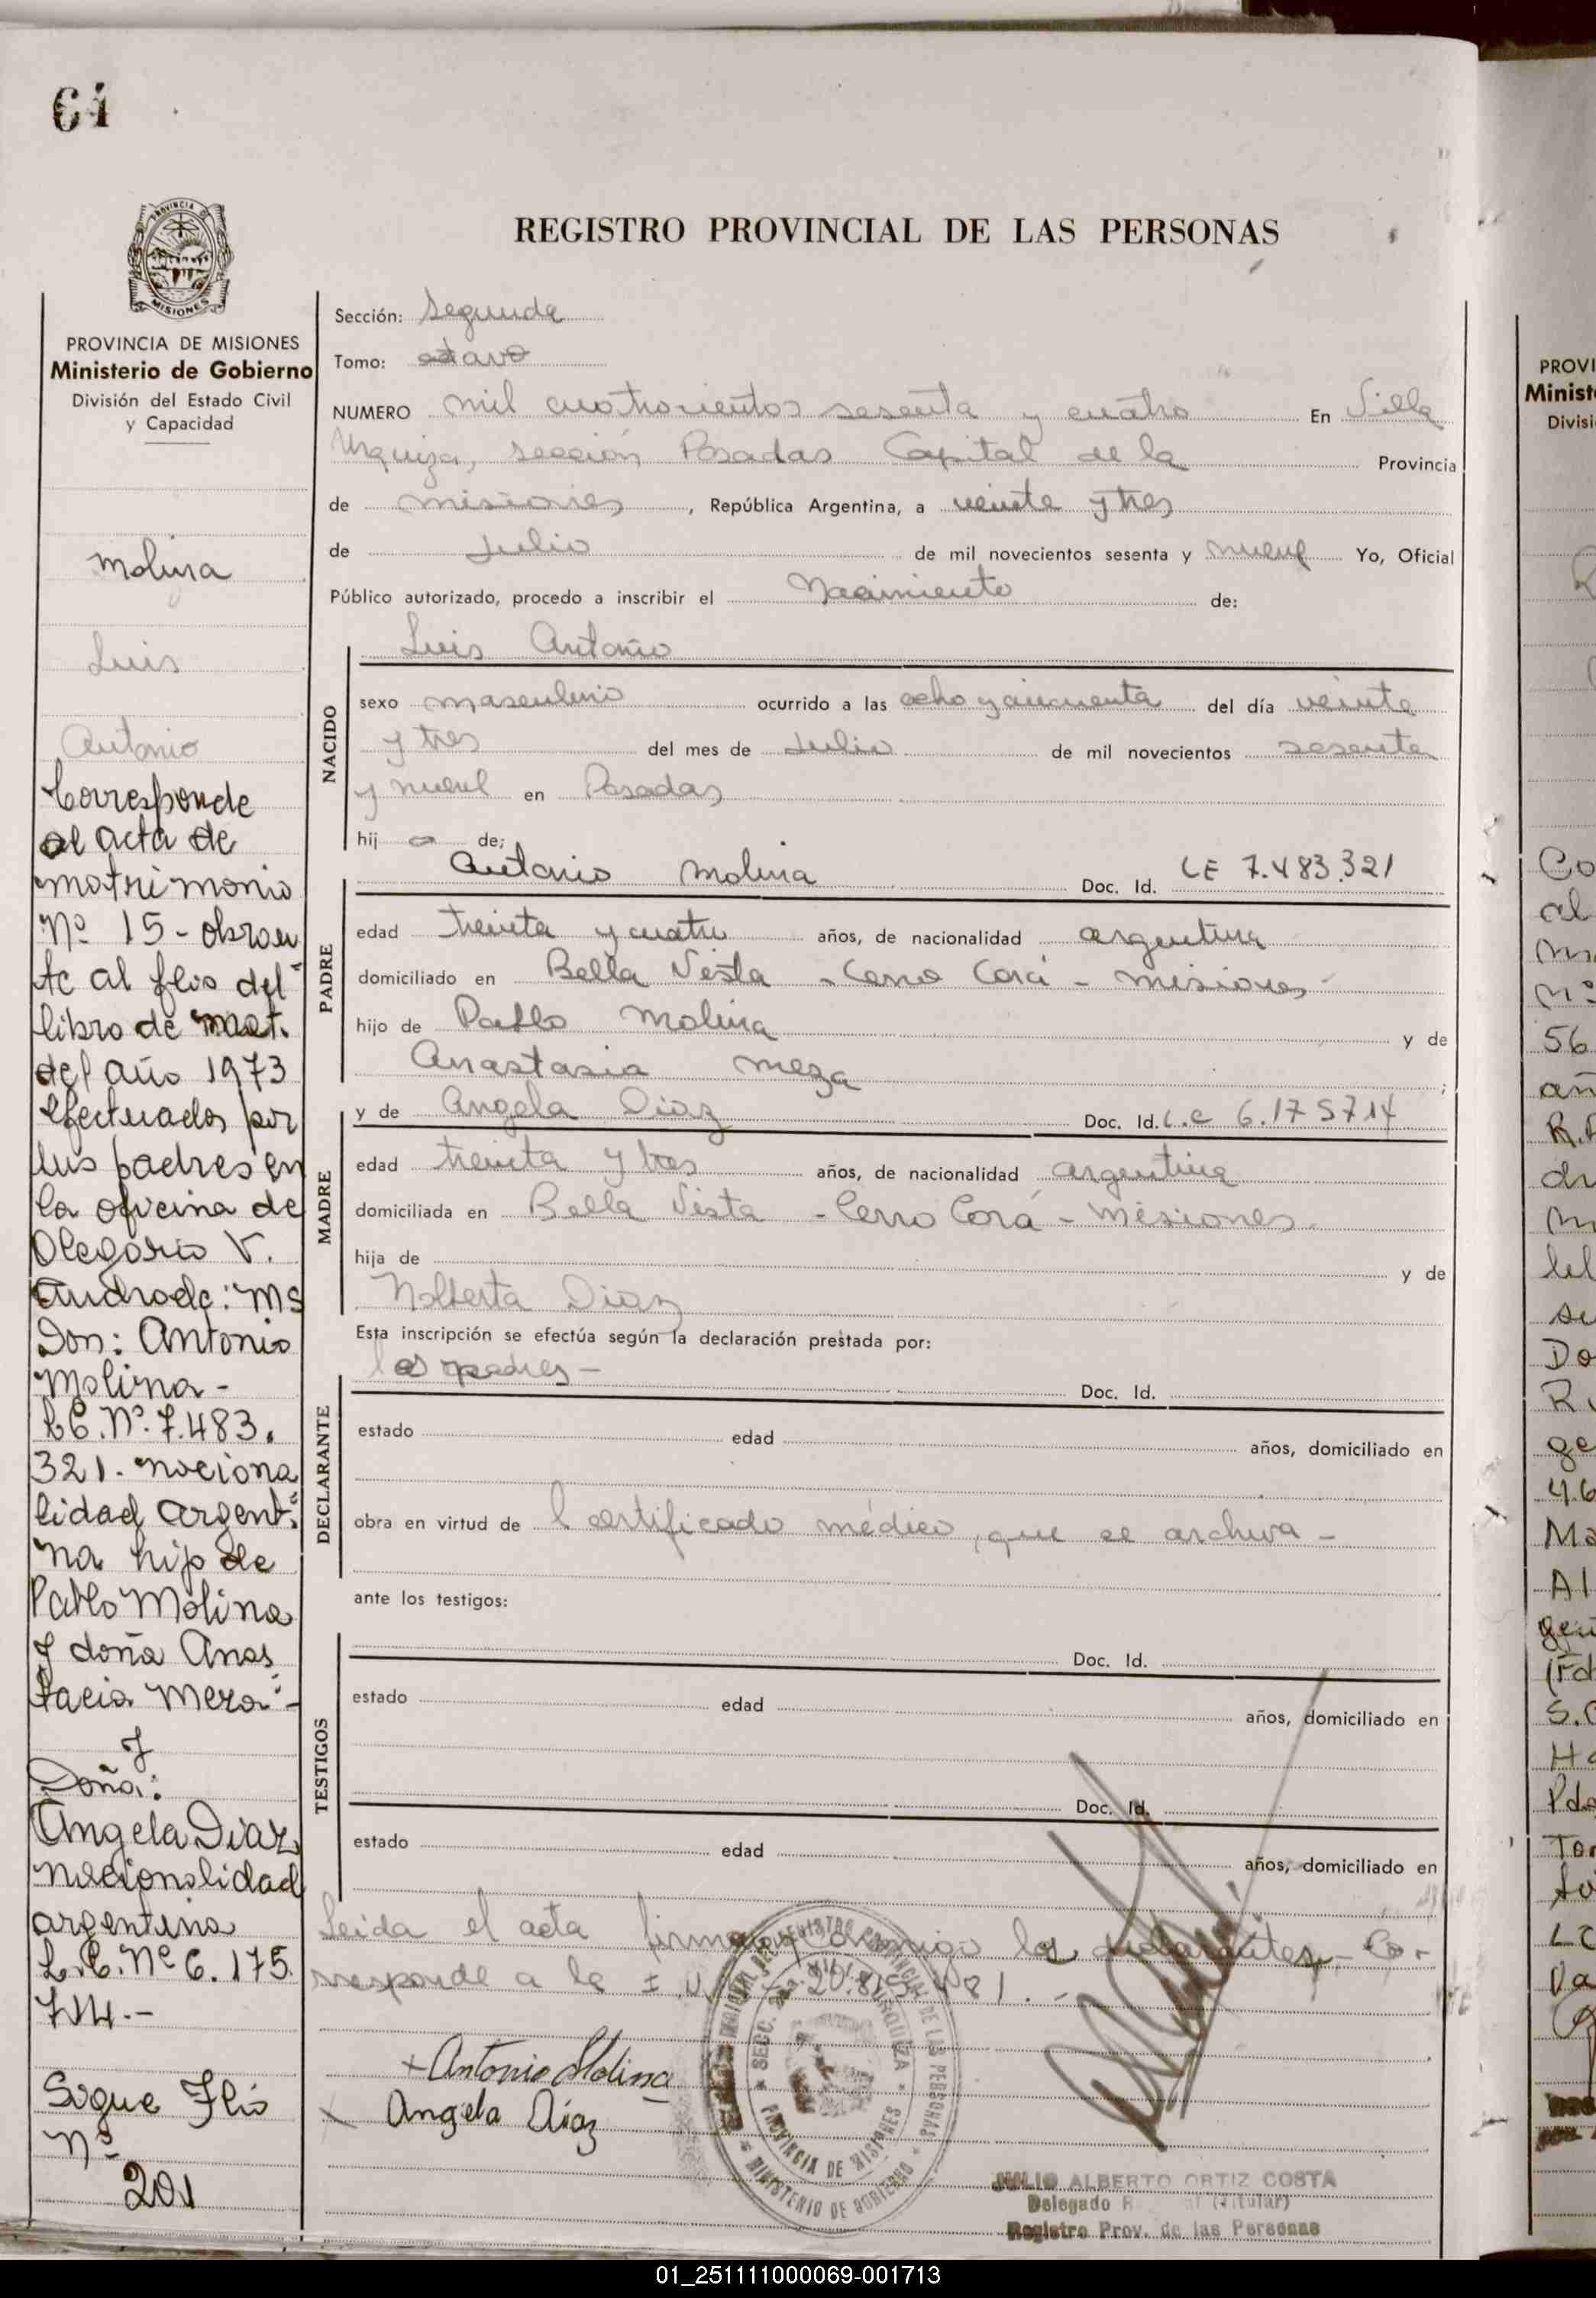 64
REGISTRO PROVINCIAL DE LAS PERSONAS
PROVINCIA DE MISIONES
Ministerio de Gobierno
División del Estado Civil
y Capacidad
Molina
Luis
Antonio
Corresponde
al acta de
matrimonio
Nº 15 - obran
te al flio del
libro de mat.
del año 1973
efectuados por
sus padres en
la oficina de
Olegario V.
Andrade: Ms
Don: Antonio
Molina -
L.E. Nº 7.483.
321. naciona
lidad argenti
na hijo de
Pablo Molina
y doña Anas
tacia Meza -
y
Doña:
Angela Diaz
nacionalidad
argentina
L.C. Nº 6.175.
714.-
Sigue Flio
Nº
201
Sección: Segunda
Tomo: octavo
NUMERO mil cuatrocientos sesenta y cuatro En Villa
Urquiza, sección Posadas Capital de la Provincia
de misiones, República Argentina, a veinte y tres
de Julio de mil novecientos sesenta y nueve Yo, Oficial
Público autorizado, procedo a inscribir el Nacimiento de:
NACIDO
Luis Antonio
sexo masculino ocurrido a las ocho y cincuenta del día veinte
y tres del mes de Julio de mil novecientos sesenta
y nueve en Posadas
hij o de;
PADRE
Antonio Molina Doc. Id. LE 7.483.321
edad treinta y cuatro años, de nacionalidad argentina
domiciliado en Bella Vista - Cerro Corá - misiones -
hijo de Pablo Molina y de
Anastasia meza ;
MADRE
y de Angela Diaz Doc. Id. L.C 6.175714
edad treinta y tres años, de nacionalidad argentina
domiciliada en Bella Vista - Cerro Corá - Misiones.
hija de y de
Nolberta Diaz
Esta inscripción se efectúa según la declaración prestada por:
DECLARANTE
los padres - Doc. Id.
estado edad años, domiciliado en
obra en virtud de l certificado médico, que se archiva -
ante los testigos:
TESTIGOS
Doc. Id.
estado edad años, domiciliado en
Doc. Id.
estado edad años, domiciliado en
Leida el acta firman conmigo los declarantes - Co-
rresponde a la I.N. 20.815.481. -
+ Antonio Molina
x Angela Díaz
REGISTRO PROVINCIAL DE LAS PERSONAS
MINISTERIO DE GOBIERNO
SECC. 2da. VILLA URQUIZA
PROVINCIA DE MISIONES
JULIO ALBERTO ORTIZ COSTA
Delegado (Titular)
Registro Prov. de las Personas
PROVI
Minist
Divisi
Co
al
56
01_251111000069-001713